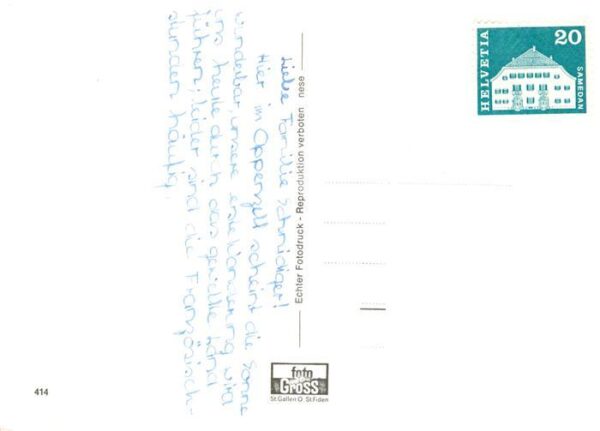 Liebe Familie Schmidiger!
Hier im Appenzell scheint die Sonne
wunderbar unsere erste Wanderung wird
uns heute durch das gewellte Land
führen, leider sind die Französisch-
stunden häufig.
Echter Fotodruck - Reproduktion verboten nese
foto
Gross
St.Gallen O. St.Fiden
414
HELVETIA
20
SAMEDAN